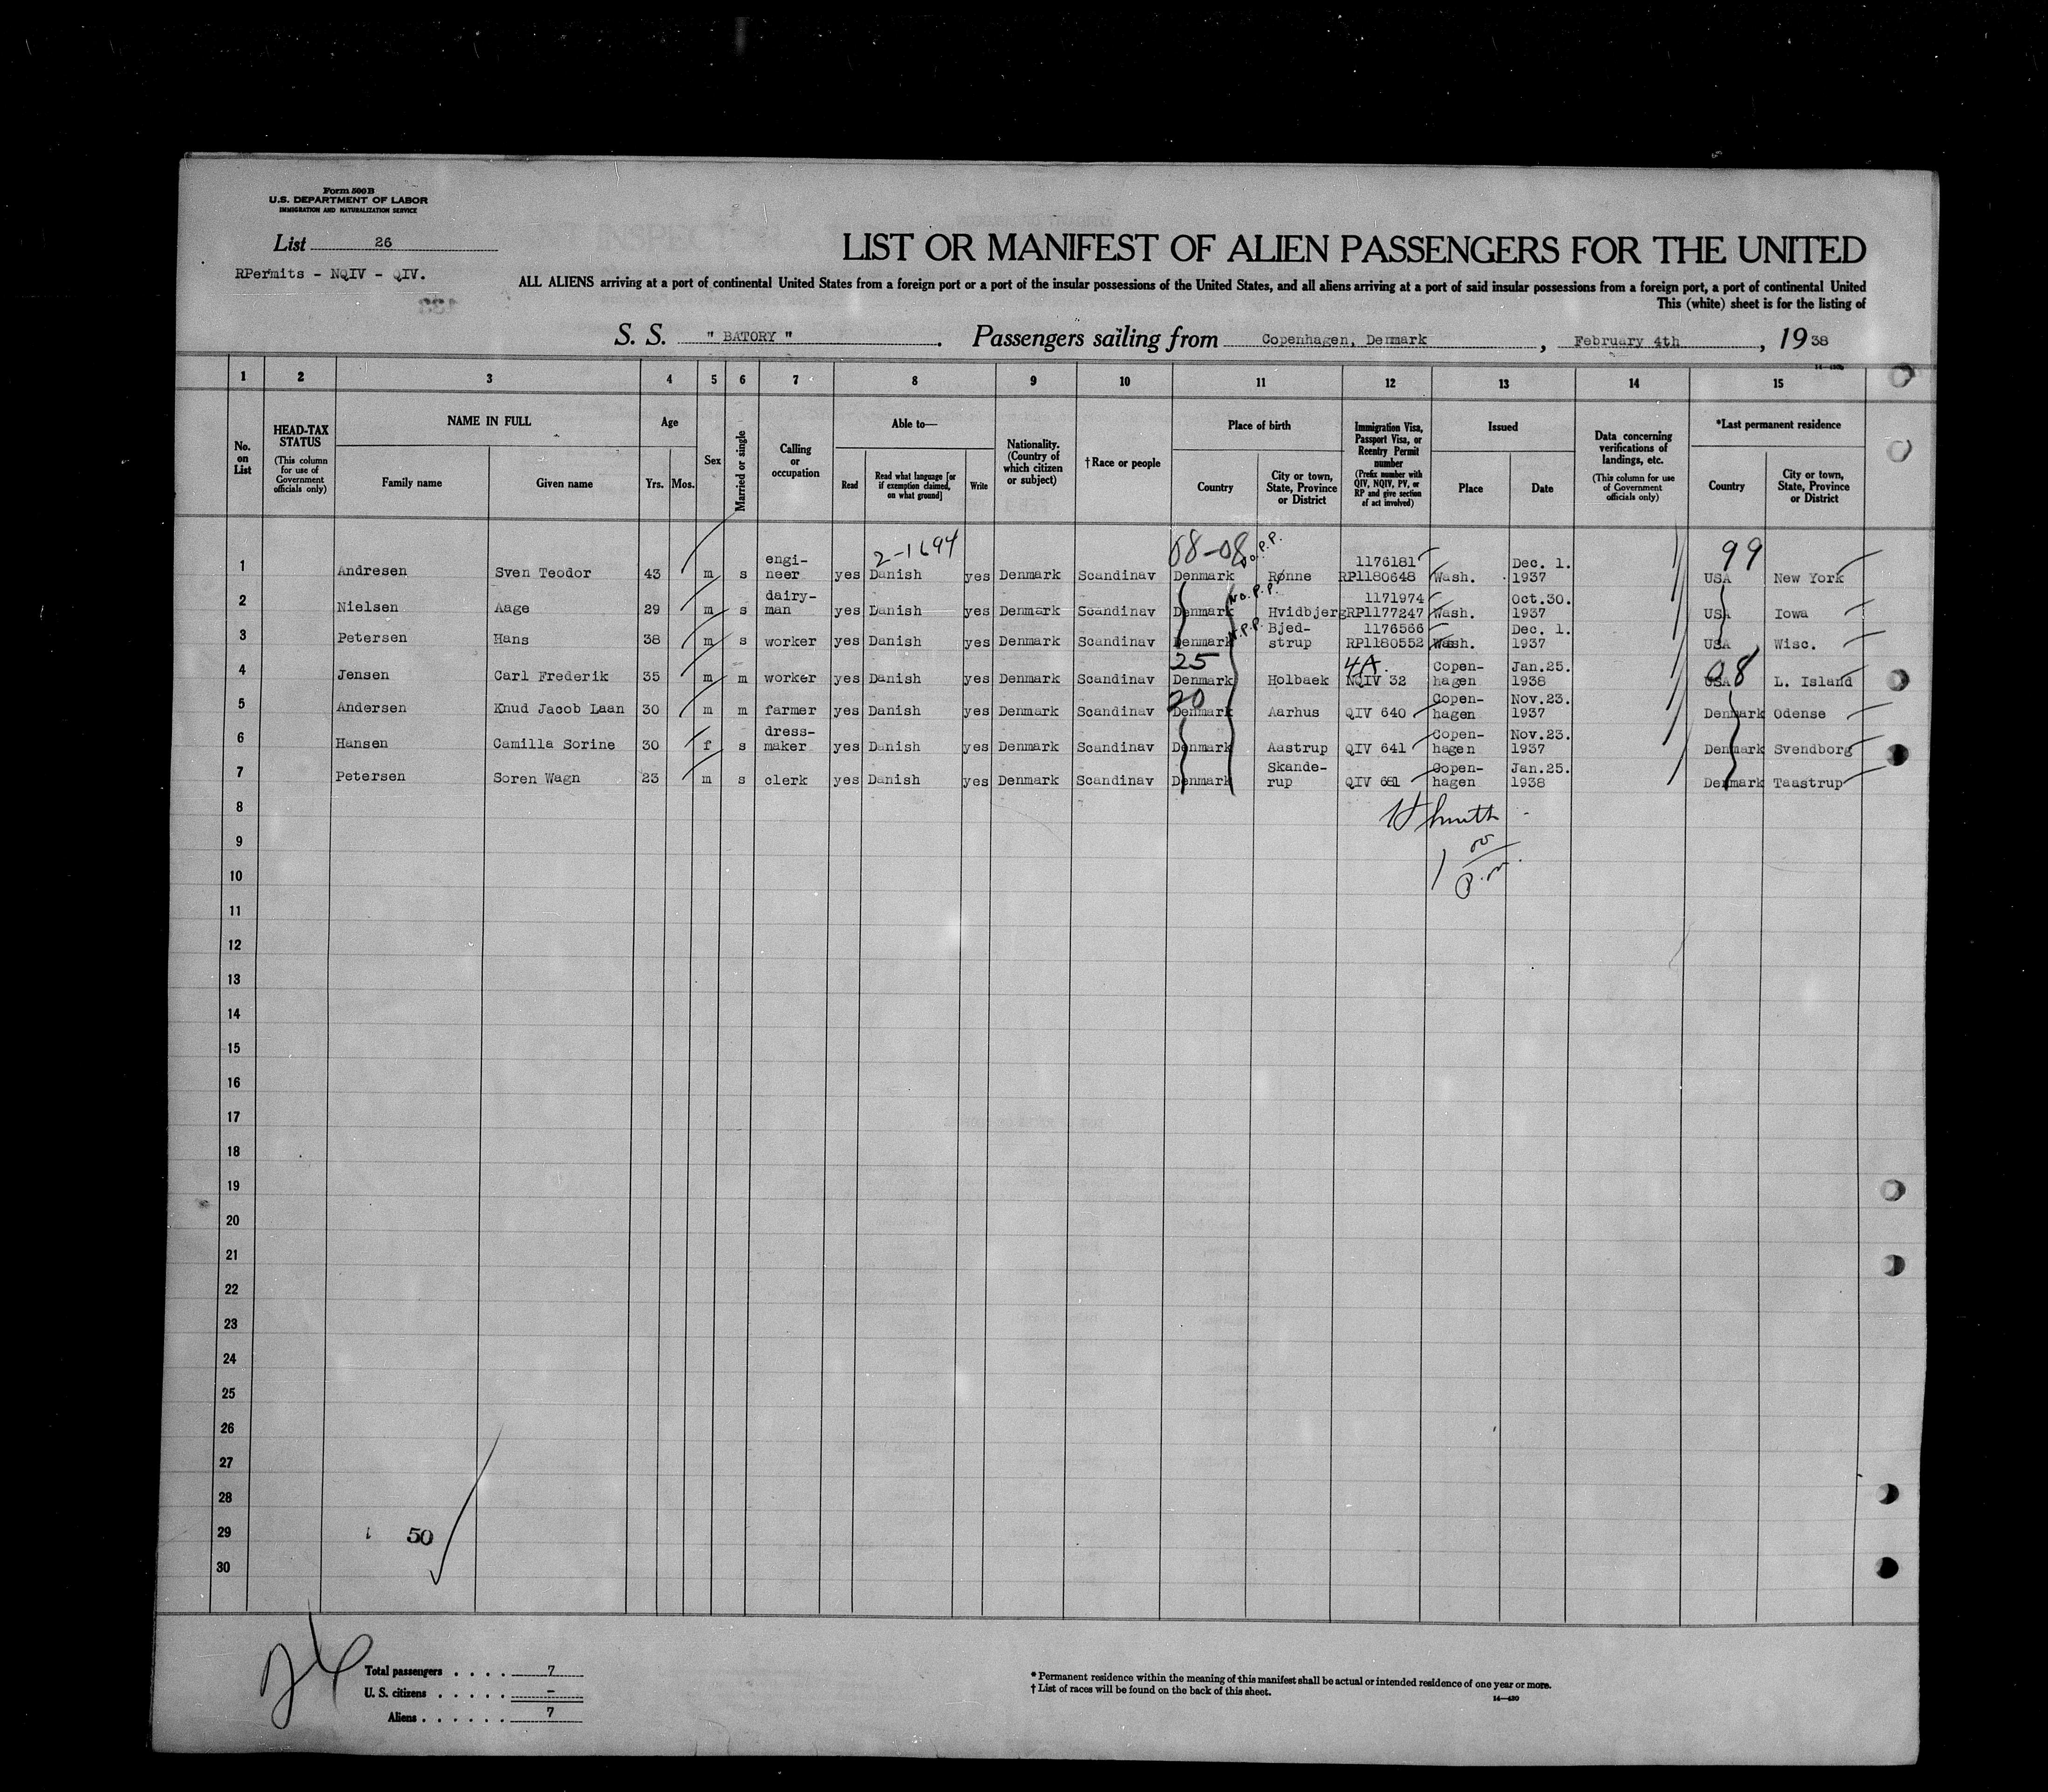 Form 500 B
U.S. DEPARTMENT OF LABOR
IMMIGRATION AND NATURALIZATION SERVICE
List 26
RPermits - NQIV - QIV.
LIST OR MANIFEST OF ALIEN PASSENGERS FOR THE UNITED
ALL ALIENS arriving at a port of continental United States from a foreign port or a port of the insular possessions of the United States, and all aliens arriving at a port of said insular possessions from a foreign port, a port of continental United
This (white) sheet is for the listing of
S. S. " BATORY " . Passengers sailing from Copenhagen, Denmark , February 4th , 1938
1 2 3 4 5 6 7 8 9 10 11 12 13 14 15
No. on List
HEAD-TAX STATUS (This column for use of Government officials only)
NAME IN FULL
Family name Given name
Age
Yrs. Mos.
Sex
Married or single
Calling or occupation
Able to—
Read Read what language [or if exemption claimed, on what ground] Write
Nationality. (Country of which citizen or subject)
†Race or people
Place of birth
Country City or town, State, Province or District
Immigration Visa, Passport Visa, or Reentry Permit number (Prefix number with QIV, NQIV, PV, or RP and give section of act involved)
Issued
Place Date
Data concerning verifications of landings, etc. (This column for use of Government officials only)
*Last permanent residence
Country City or town, State, Province or District
14—430
2-1694 08-08 99
1 Andresen Sven Teodor 43 m s engi-neer yes Danish yes Denmark Scandinav Denmark No.P.P. Rønne 1176181 RP1180648 Wash. Dec. 1. 1937 USA New York
2 Nielsen Aage 29 m s dairy-man yes Danish yes Denmark Scandinav Denmark No.P.P. Hvidbjerg 1171974 RP1177247 Wash. Oct.30. 1937 USA Iowa
3 Petersen Hans 38 m s worker yes Danish yes Denmark Scandinav Denmark N.P.P. Bjed-strup 1176566 RP1180552 Wash. Dec. 1. 1937 USA Wisc.
25 4A. 08
4 Jensen Carl Frederik 35 m m worker yes Danish yes Denmark Scandinav Denmark Holbaek NQIV 32 Copen-hagen Jan.25. 1938 USA L. Island
20
5 Andersen Knud Jacob Laan 30 m m farmer yes Danish yes Denmark Scandinav Denmark Aarhus QIV 640 Copen-hagen Nov.23. 1937 Denmark Odense
6 Hansen Camilla Sorine 30 f s dress-maker yes Danish yes Denmark Scandinav Denmark Aastrup QIV 641 Copen-hagen Nov.23. 1937 Denmark Svendborg
7 Petersen Soren Wagn 23 m s clerk yes Danish yes Denmark Scandinav Denmark Skande-rup QIV 681 Copen-hagen Jan.25. 1938 Denmark Taastrup
8
9
10
11
12
13
14
15
16
17
18
19
20
21
22
23
24
25
26
27
28
29 50
30
26
Total passengers . . . . 7
U. S. citizens . . . . . –
Aliens . . . . . . 7
* Permanent residence within the meaning of this manifest shall be actual or intended residence of one year or more.
† List of races will be found on the back of this sheet.
14—430